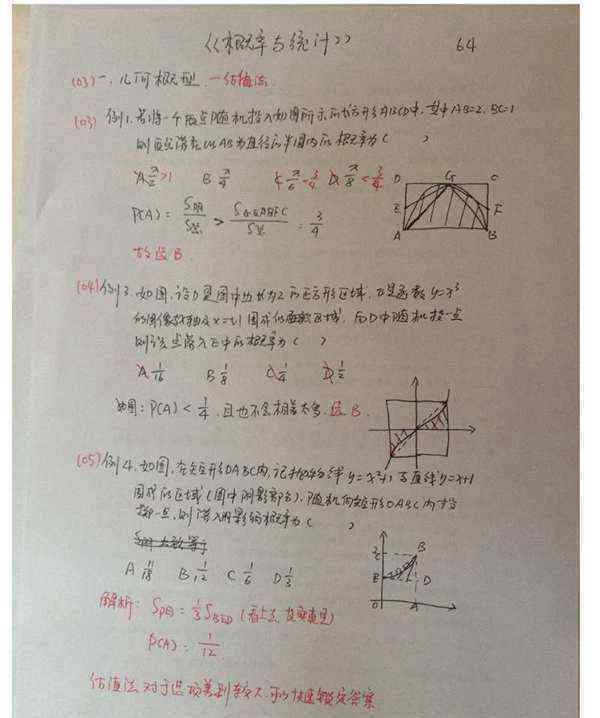 《概率与统计》 64
(03)一、几何概型.一估值法.
(03) 例1.若将一个质点随机投入如图所示的长方形ABCD中,其中AB=2,BC=1
则质点落在以AB为直径的半圆内的概率为( )
A π/2 >1 B π/4 C π/6 < 3/4 D π/8 < 3/4
P(A) = S阴/S总 > /S总 = 3/4
D G C
E F
A B
故选B.
(04)例3.如图,设D是图中边长为2的正方形区域,E是函数y=x³
的图像与x轴及x=±1围成的区域,向D中随机投一点
则该点落入E中的概率为( )
A 1/16 B 1/8 C 1/4 D 1/2
如图:P(A) < 1/4,且也不会相差太多,选B.
(05)例4.如图,在矩形OABC内,记抛物线y=x²+1与直线y=x+1
围成的区域(图中阴影部分).随机向矩形OABC内
抛一点,则落入阴影的概率为( )
A 1/18 B 1/12 C 1/6 D 1/3
B
E D
O A
解析:S阴=1/3 S
P(A)=1/12
估值法对于选项差别较大,可以快速锁定答案.